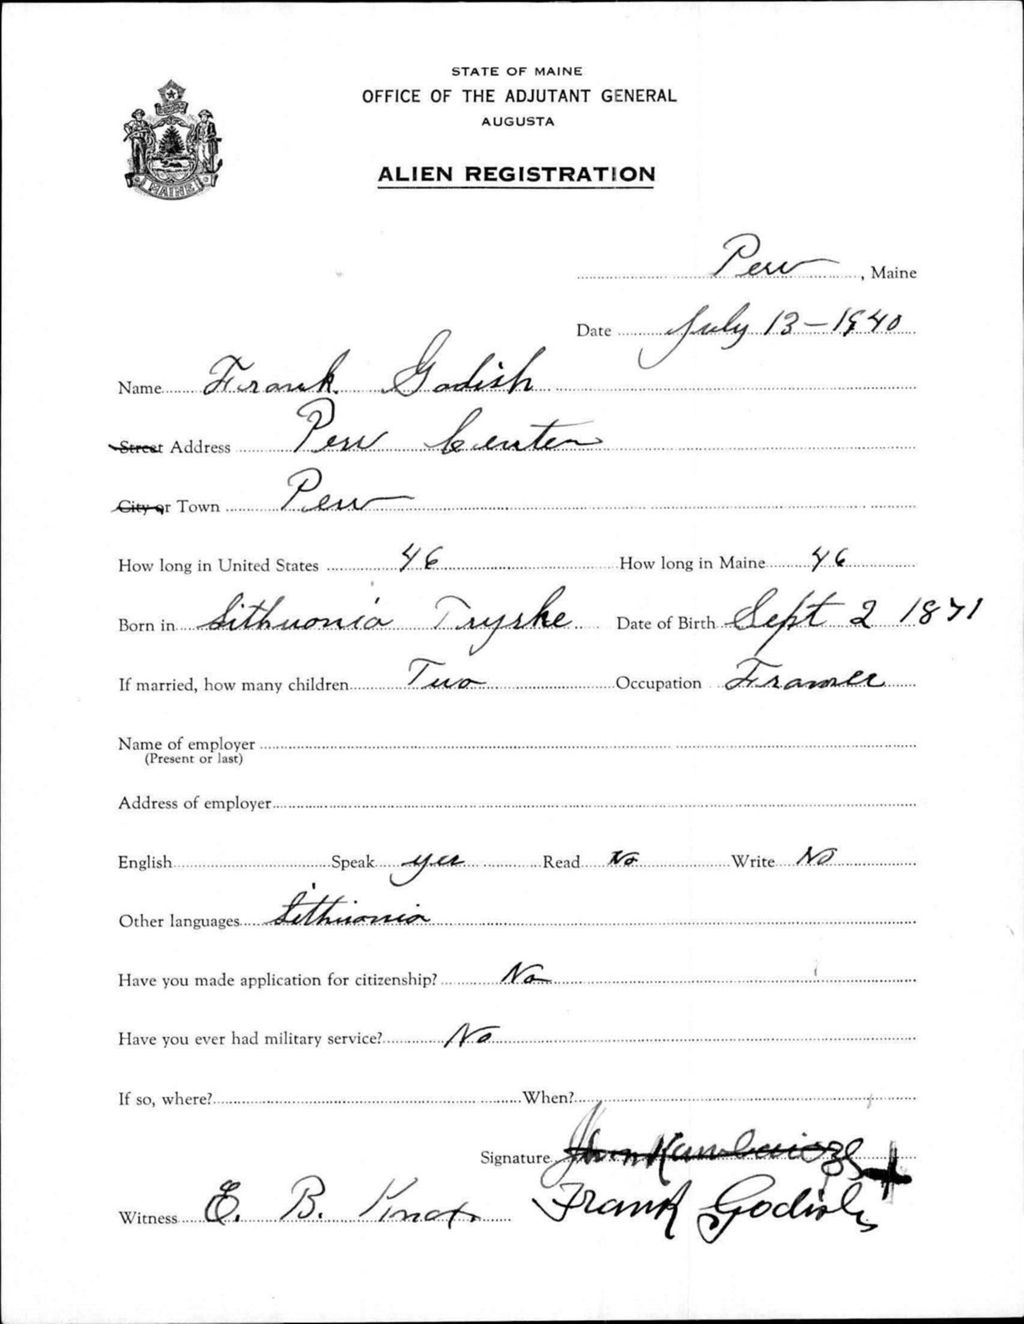 STATE OF MAINE
OFFICE OF THE ADJUTANT GENERAL
AUGUSTA
ALIEN REGISTRATION
MAINE
Peru, Maine
Date July 13-1940
Name Frank Godish
Street Address Peru Center
City or Town Peru
How long in United States 46 How long in Maine 46
Born in Lithuonia Date of Birth Sept 2 1871
If married, how many children Two Occupation Framer
Name of employer
(Present or last)
Address of employer
English Speak yes Read No Write No
Other languages Lithuonia
Have you made application for citizenship? No
Have you ever had military service? No
If so, where? When?
Signature
Witness E. B. Knox Frank Godish